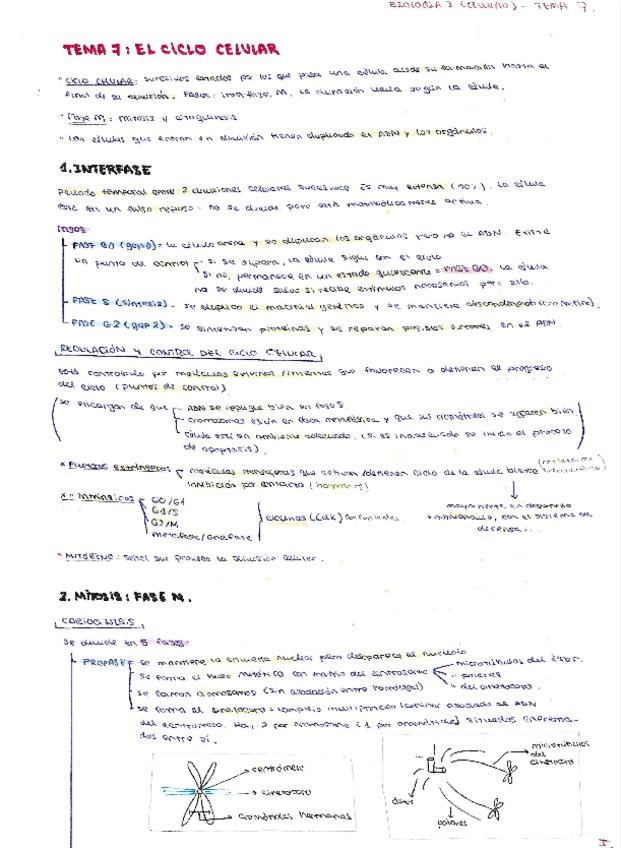 BIOLOGÍA I (CELULAR) - TEMA 7.
TEMA 7: EL CICLO CELULAR
* CICLO CELULAR: sucesivos estados por los que pasa una célula desde su formación hasta el
final de su división. Fases: interfase, M. La duración varía según la célula.
* Fase M: mitosis y citoquinesis
* Las células que entran en división tienen duplicado el ADN y los orgánulos.
1. INTERFASE
Periodo temporal entre 2 divisiones celulares sucesivas. Es muy extensa (90%). La célula
está en un falso reposo: no se divide pero está metabólicamente activa.
FASE G1 (gap 1) = la célula crece y se duplican los orgánulos pero no el ADN. Existe
un punto de control
si se supera, la célula sigue con el ciclo
si no, permanece en un estado quiescente = FASE G0. La célula
no se divide salvo si recibe estímulos necesarios para ello.
FASE S (síntesis) - se duplica el material genético y se mantiene
FASE G2 (gap 2) - se sintetizan proteínas y se reparan posibles errores en el ADN.
REGULACIÓN Y CONTROL DEL CICLO CELULAR
Está controlado por moléculas externas / internas que favorecen o detienen el progreso
del ciclo (puntos de control)
se encargan de que
ADN se replique bien en fase S
cromosomas estén en placa metafásica y que sus cromátidas se separen bien
célula está en ambiente adecuado. (si es inadecuado se inicia el proceso
de apoptosis).
* Puntos extrínsecos
moléculas mensajeras que activan/detienen ciclo de la célula
inhibición por contacto
* " Intrínsecos
G0/G1
G1/S
G2/M
metafase/anafase
ciclinas (Cdk)
defensa...
* MITÓGENO: señal que provoca la división celular.
2. MITOSIS: FASE M.
CARIOCINESIS
Se divide en 5 fases:
PROFASE
se mantiene la envuelta nuclear pero desaparece el nucleolo
se forma el huso mitótico con matriz del centrosoma
microtúbulos del áster.
" polares
" del cinetocoro.
se forman cromosomas (sin asociación entre homólogos)
se forma el cinetocoro = complejo multiproteico laminar asociado al ADN
del centrómero. Hay 2 por cromosoma (1 por cromátida) situados enfrenta-
dos entre sí.
centrómero
cinetocoro
cromátidas hermanas
microtúbulos
del
cinetocoro
áster
polares
1.